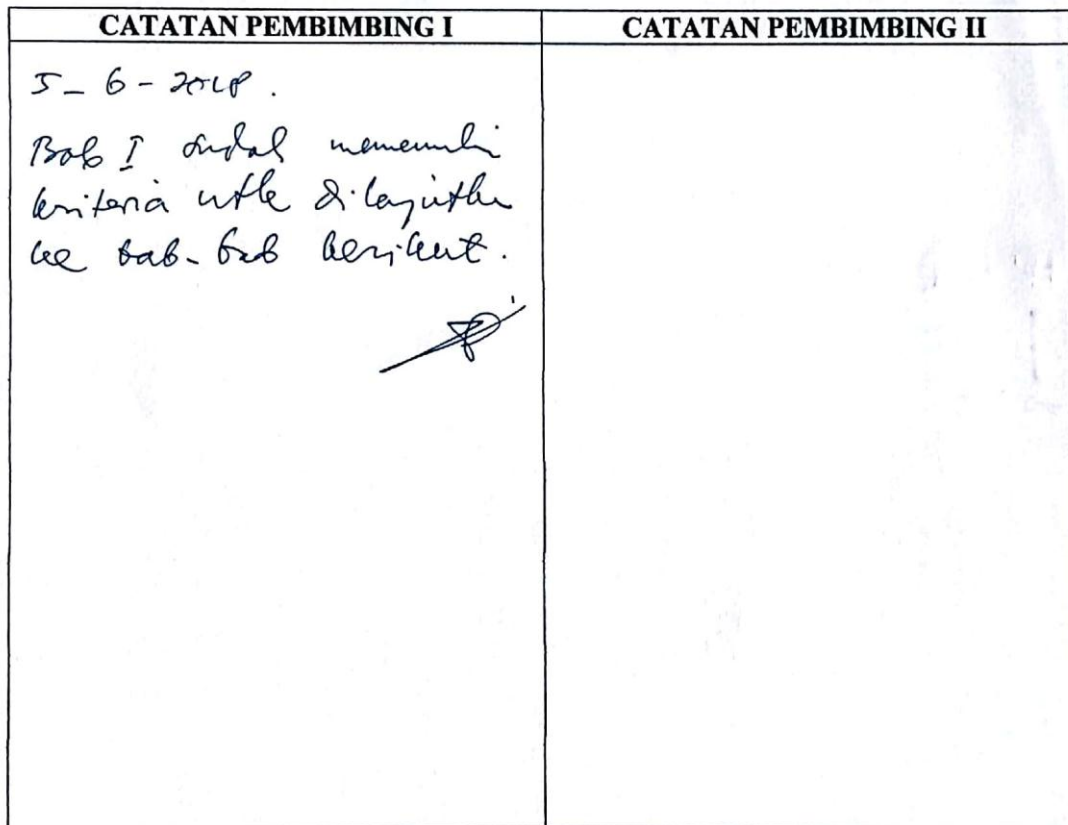 CATATAN PEMBIMBING I
CATATAN PEMBIMBING II
5-6-2018.
Bab I sudah memenuhi
kriteria utk dilanjutkn
ke bab-bab berikut.